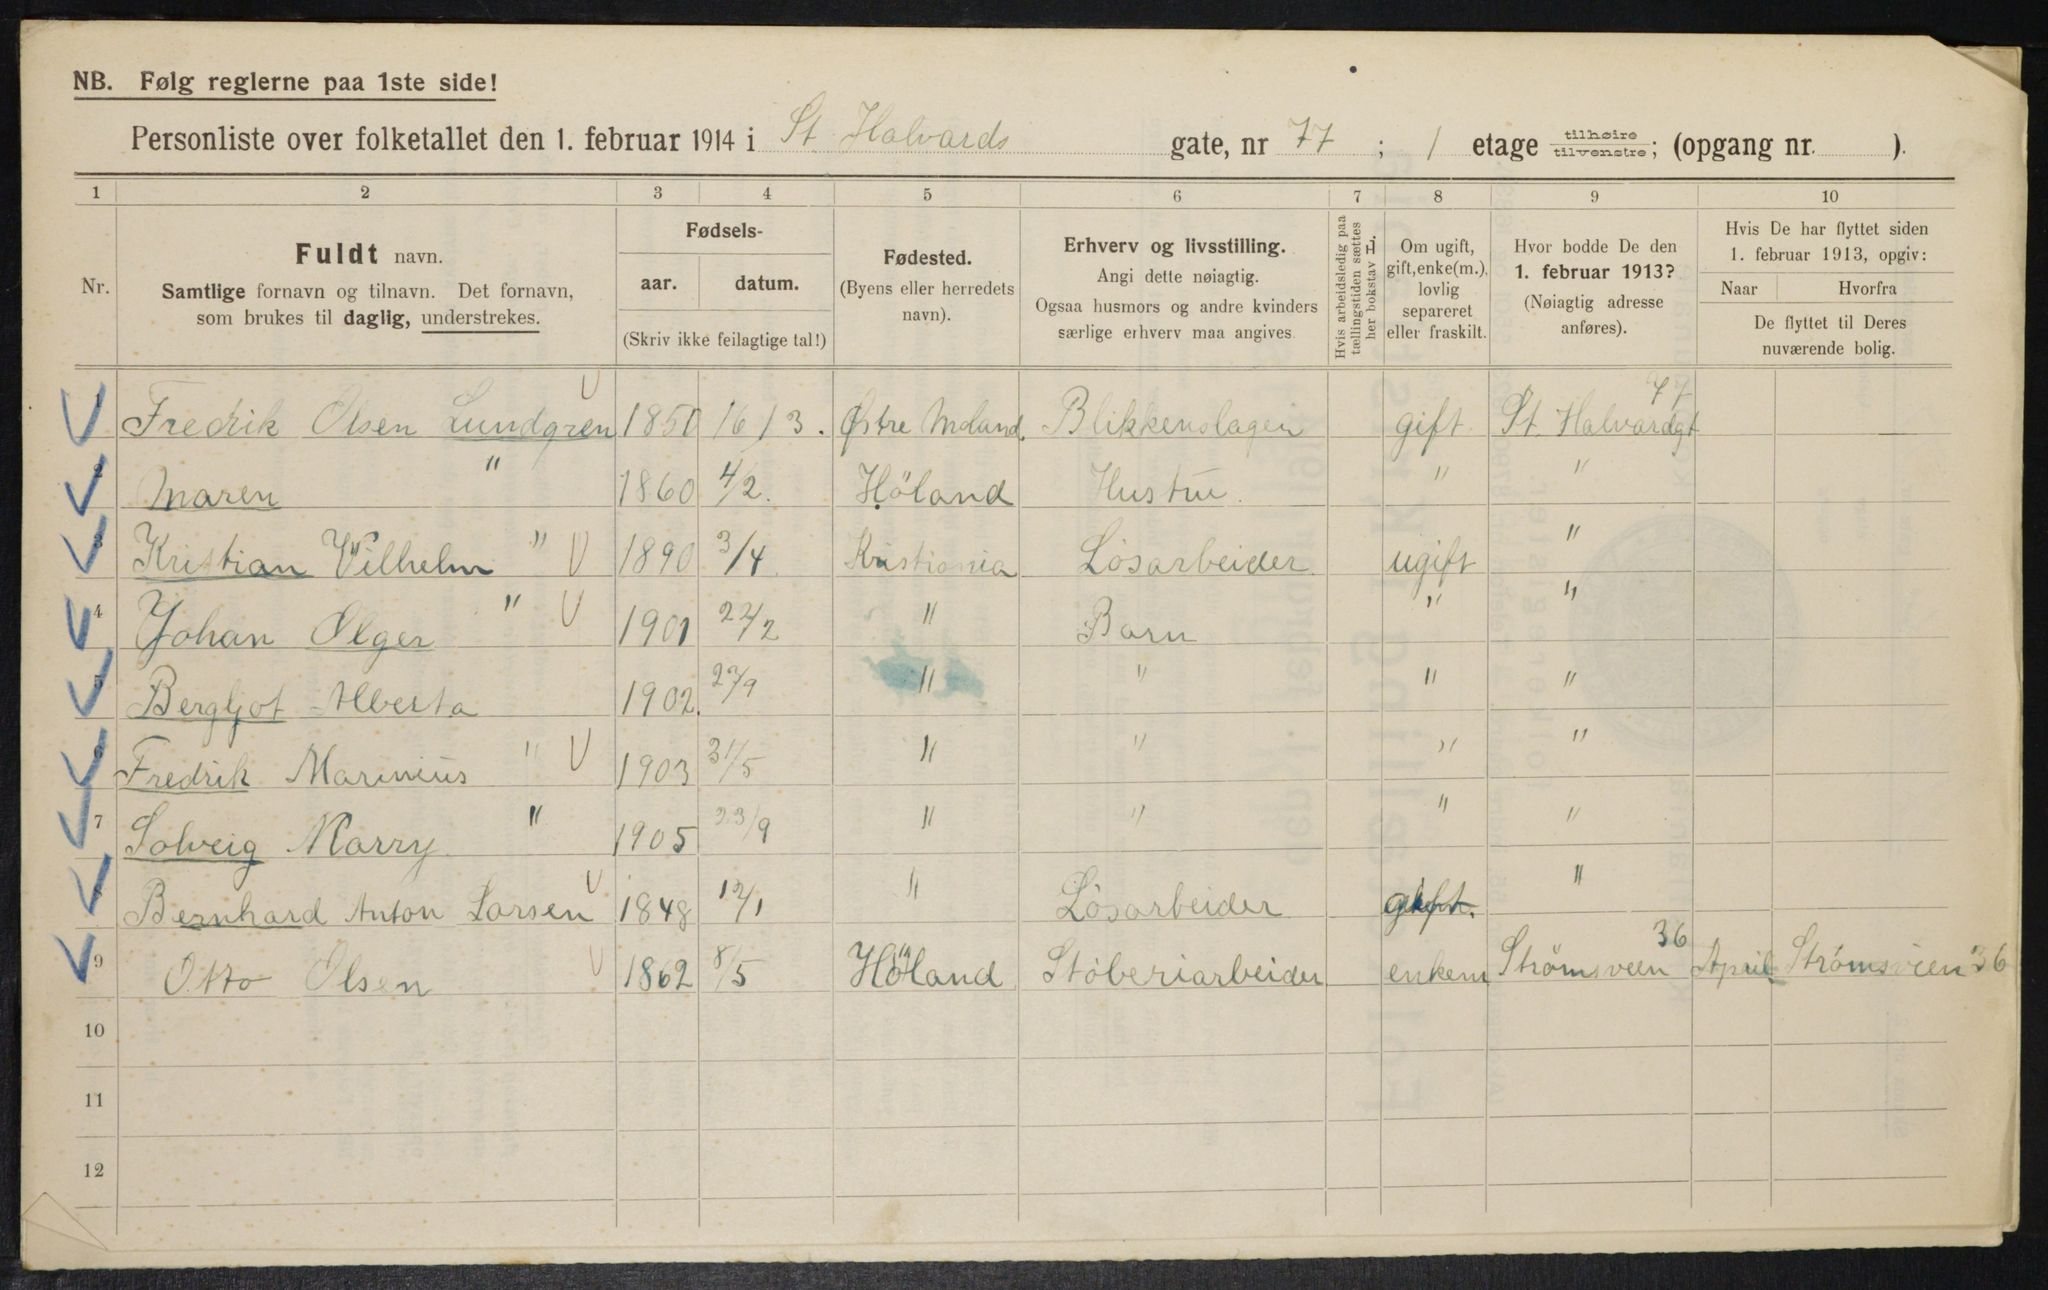 NB. Følg reglerne paa 1ste side!
Personliste over folketallet den 1. februar 1914 i St Halvards gate, nr 77 ; 1 etage tilhøire tilvenstre; (opgang nr. ).
1 2 3 4 5 6 7 8 9 10
Nr. Fuldt navn. Samtlige fornavn og tilnavn. Det fornavn, som brukes til daglig, understrekes.
Fødsels- aar. datum. (Skriv ikke feilagtige tal!)
Fødested. (Byens eller herredets navn).
Erhverv og livsstilling. Angi dette nøiagtig. Ogsaa husmors og andre kvinders særlige erhverv maa angives
Hvis arbeidsledig paa tællingstiden sættes her bokstav L.
Om ugift, gift, enke(m.), lovlig separeret eller fraskilt.
Hvor bodde De den 1. februar 1913? (Nøiagtig adresse anføres).
Hvis De har flyttet siden 1. februar 1913, opgiv:
Naar Hvorfra
De flyttet til Deres nuværende bolig.
1 Fredrik Olsen Lundgren 1850 16/3. Østre Moland. Blikkenslager gift. St. Halvardgt 77
2 Maren " 1860 4/2. Höland Hustru. " "
3 Kristian Vilhelm " 1890 3/4 Kristiania Lösarbeider ugift "
4 Johan Olger " 1901 22/2 " Barn " "
5 Bergljot Alberta 1902. 27/9 " " " "
6 Fredrik Marinius " 1903 31/5 " " " "
7 Solveig Marry " 1905 23/9 " " " "
8 Bernhard Anton Larsen 1848 12/1 " Lösarbeider gift. "
9 Otto Olsen 1862 8/5 Höland Stöberiarbeider enkem Strömsveen 36 April Strömsveien 36
10
11
12